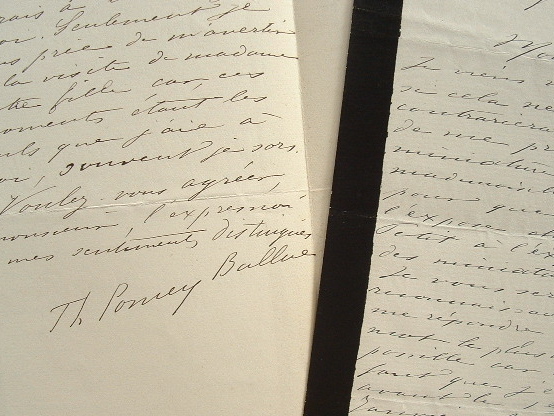 Seulement je
prie de m'avertir
la visite de madame
fille car, ces
moments étant les
seuls que j'aie à
moi, souvent je sors.
Voulez vous agréer,
monsieur, l'expression
mes sentiments distingués
Th Pomey Ballue
Je viens
si cela ne
contrarierai
de me pr
miniature
mademoise
pour que
l'expose
Petit à l'ex
des miniatu
Je vous se
reconnaissan
me répondre
mot le plus
possible car
faut que j'
avant le